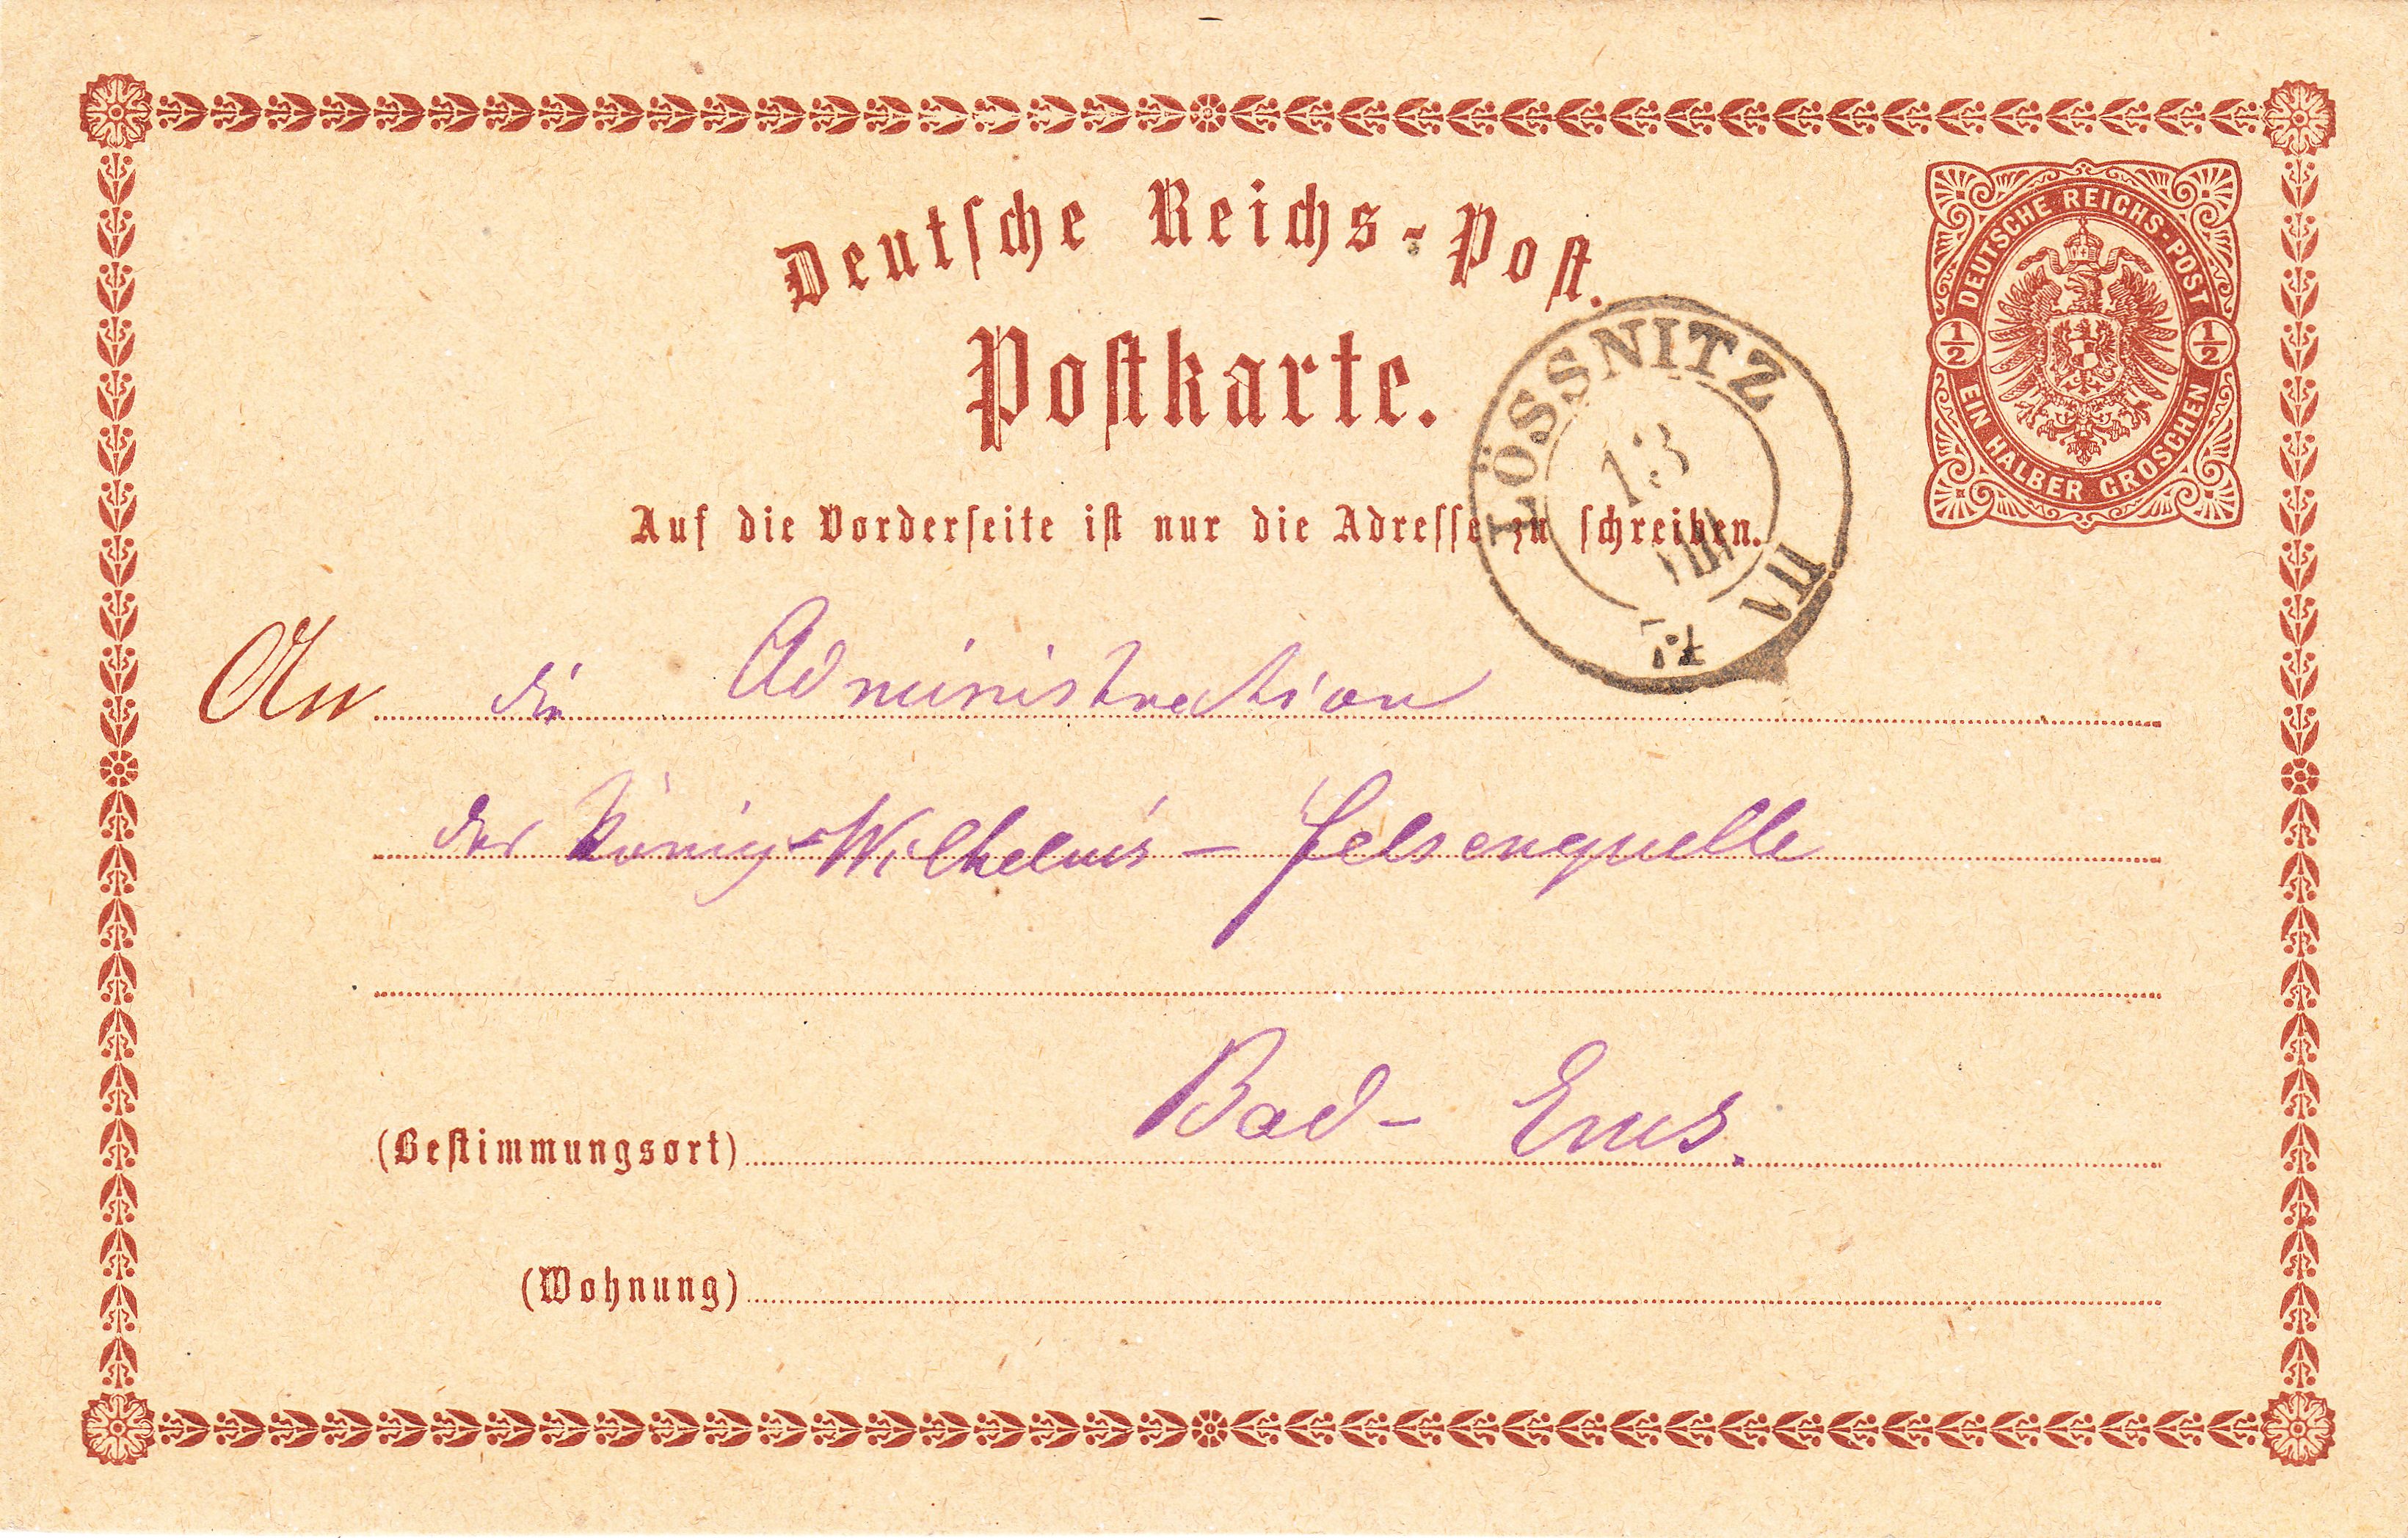 Deutsche Reichs-Post.
Postkarte.
DEUTSCHE REICHS-POST
1/2 1/2
EIN HALBER GROSCHEN
LÖSSNITZ
13
VIII
VII
Auf die Vorderseite ist nur die Adresse zu schreiben.
An die Administration
der König-Wilhelms-Felsenquelle
(Bestimmungsort) Bad-Ems.
(Wohnung)